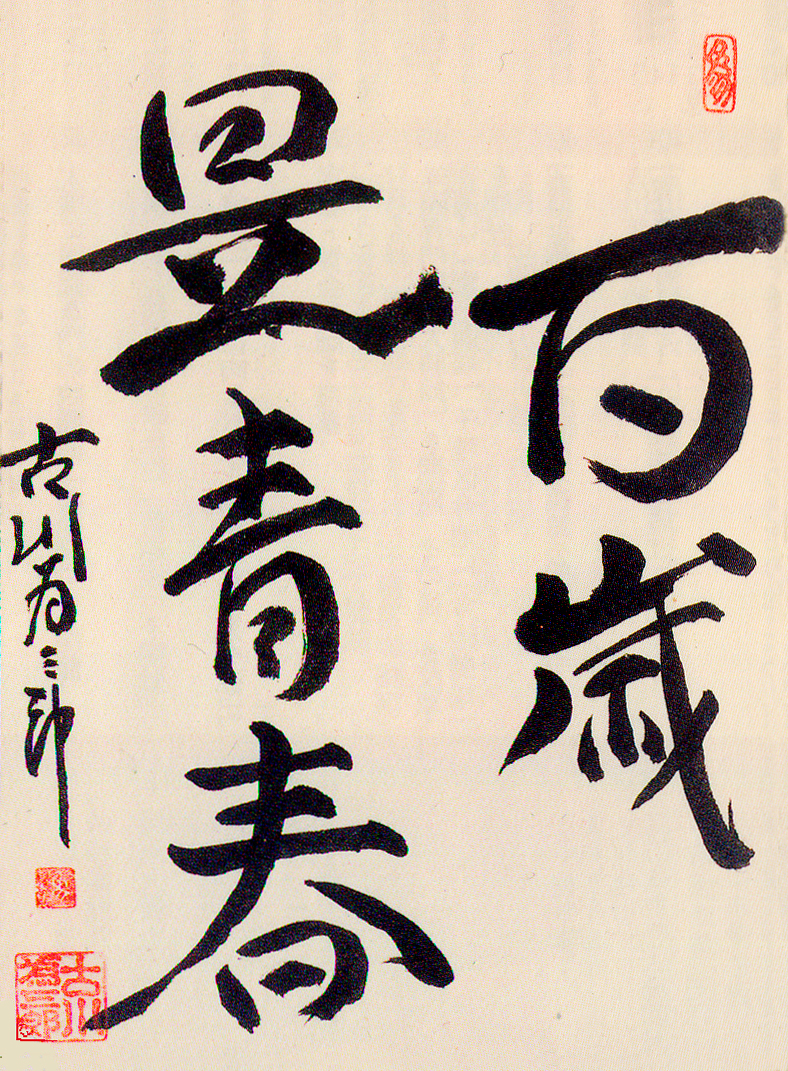 百歳
是青春
古川為三郎
古川
為三郎